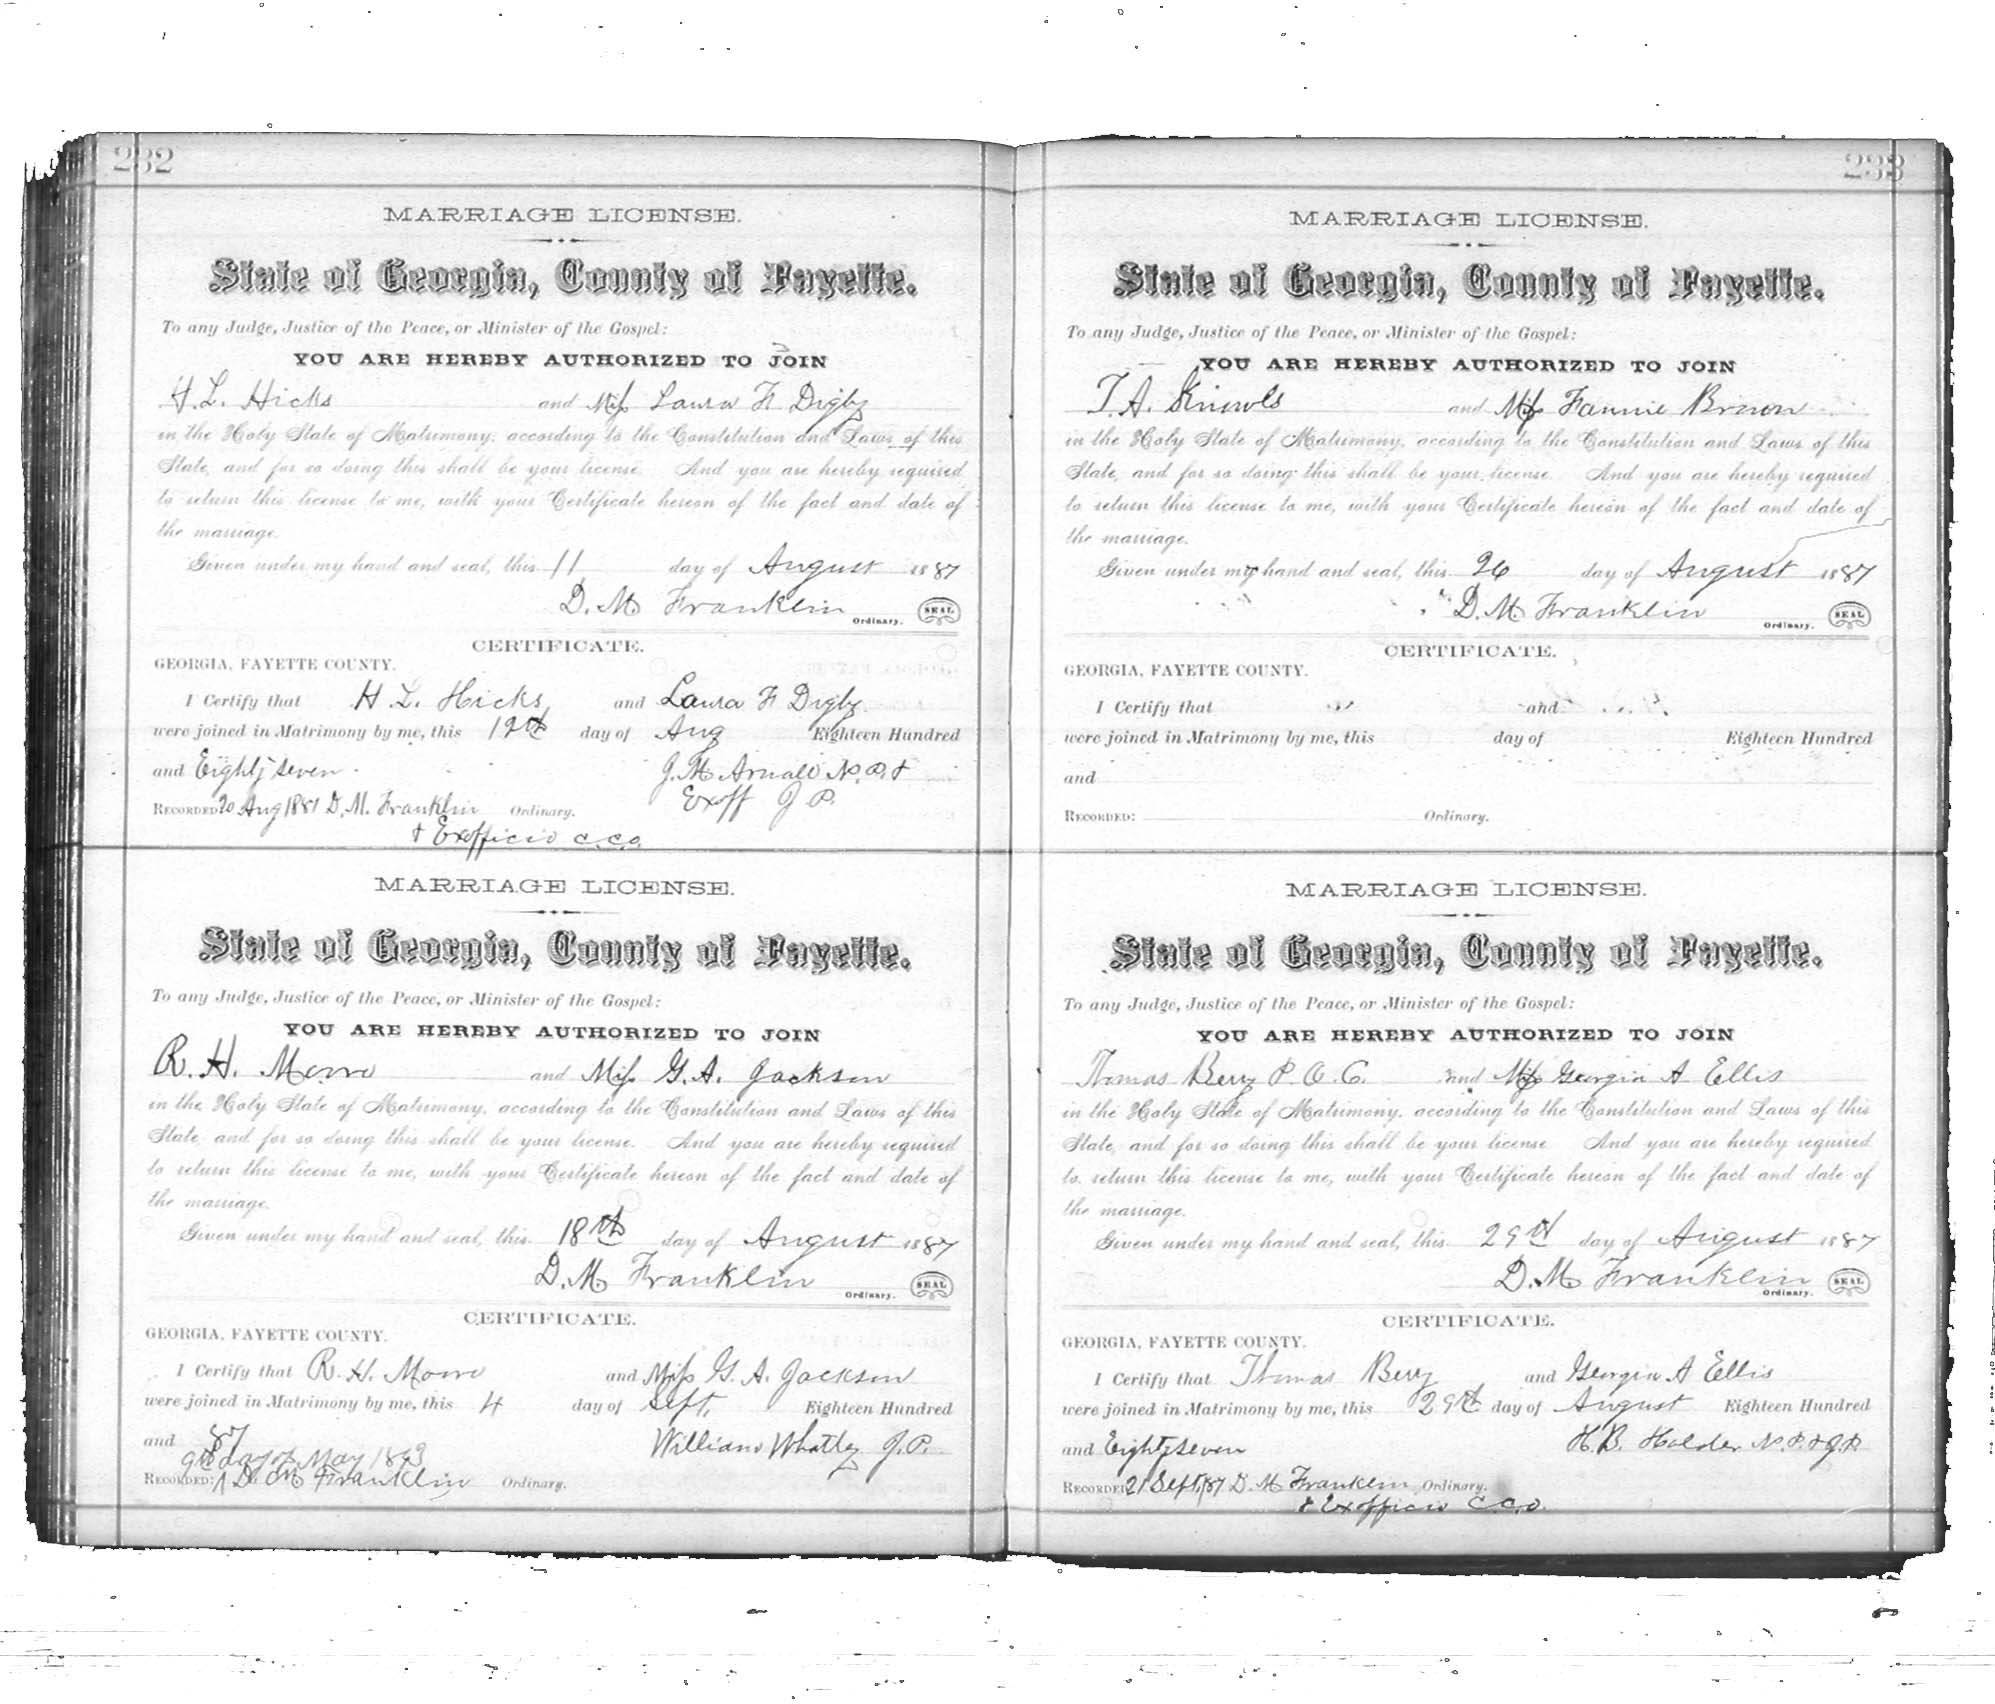 232
MARRIAGE LICENSE.
State of Georgia, County of Fayette.
To any Judge, Justice of the Peace, or Minister of the Gospel:
YOU ARE HEREBY AUTHORIZED TO JOIN
H. L. Hicks and Miss Laura F Digby
in the Holy State of Matrimony, according to the Constitution and Laws of this
State, and for so doing this shall be your license. And you are hereby required
to return this license to me, with your Certificate hereon of the fact and date of
the marriage.
Given under my hand and seal, this 11 day of August 1887
D. M Franklin
Ordinary. SEAL
CERTIFICATE.
GEORGIA, FAYETTE COUNTY.
I Certify that H L. Hicks and Laura F Digby
were joined in Matrimony by me, this 12th day of Aug Eighteen Hundred
and Eighty seven J. M. Arnall N. P. &
Exoff J P.
RECORDED 20 Aug 1887 D. M. Franklin Ordinary.
& Exofficio c.c.o.
MARRIAGE LICENSE.
State of Georgia, County of Fayette.
To any Judge, Justice of the Peace, or Minister of the Gospel:
YOU ARE HEREBY AUTHORIZED TO JOIN
R. H. Moore and Miss G. A. Jackson
in the Holy State of Matrimony, according to the Constitution and Laws of this
State, and for so doing this shall be your license. And you are hereby required
to return this license to me, with your Certificate hereon of the fact and date of
the marriage.
Given under my hand and seal, this 18th day of August 1887
D. M Franklin
Ordinary. SEAL
CERTIFICATE.
GEORGIA, FAYETTE COUNTY.
I Certify that R. H. Moore and Miss G. A. Jackson
were joined in Matrimony by me, this 4 day of Sept, Eighteen Hundred
and 87 William Whatley J. P.
9th day of May 1893
RECORDED: D. M Franklin Ordinary.
233
MARRIAGE LICENSE.
State of Georgia, County of Fayette.
To any Judge, Justice of the Peace, or Minister of the Gospel:
YOU ARE HEREBY AUTHORIZED TO JOIN
T. A. Knowls and Miss Fannie Brown
in the Holy State of Matrimony, according to the Constitution and Laws of this
State, and for so doing this shall be your license. And you are hereby required
to return this license to me, with your Certificate hereon of the fact and date of
the marriage.
Given under my hand and seal, this 26 day of August 1887
D. M. Franklin
Ordinary. SEAL
CERTIFICATE.
GEORGIA, FAYETTE COUNTY.
I Certify that and
were joined in Matrimony by me, this day of Eighteen Hundred
and
RECORDED: Ordinary.
MARRIAGE LICENSE.
State of Georgia, County of Fayette.
To any Judge, Justice of the Peace, or Minister of the Gospel:
YOU ARE HEREBY AUTHORIZED TO JOIN
Thomas Berry P. O. C. and Miss Georgia A Ellis
in the Holy State of Matrimony, according to the Constitution and Laws of this
State, and for so doing this shall be your license. And you are hereby required
to return this license to me, with your Certificate hereon of the fact and date of
the marriage.
Given under my hand and seal, this 29th day of August 1887
D. M Franklin
Ordinary. SEAL
CERTIFICATE.
GEORGIA, FAYETTE COUNTY.
I Certify that Thomas Berry and Georgia A Ellis
were joined in Matrimony by me, this 29th day of August Eighteen Hundred
and Eighty seven H. B. Holder N. P. & J P
RECORDED 21 Sept, 87 D. M Franklin Ordinary.
& Exofficio c.c.o.